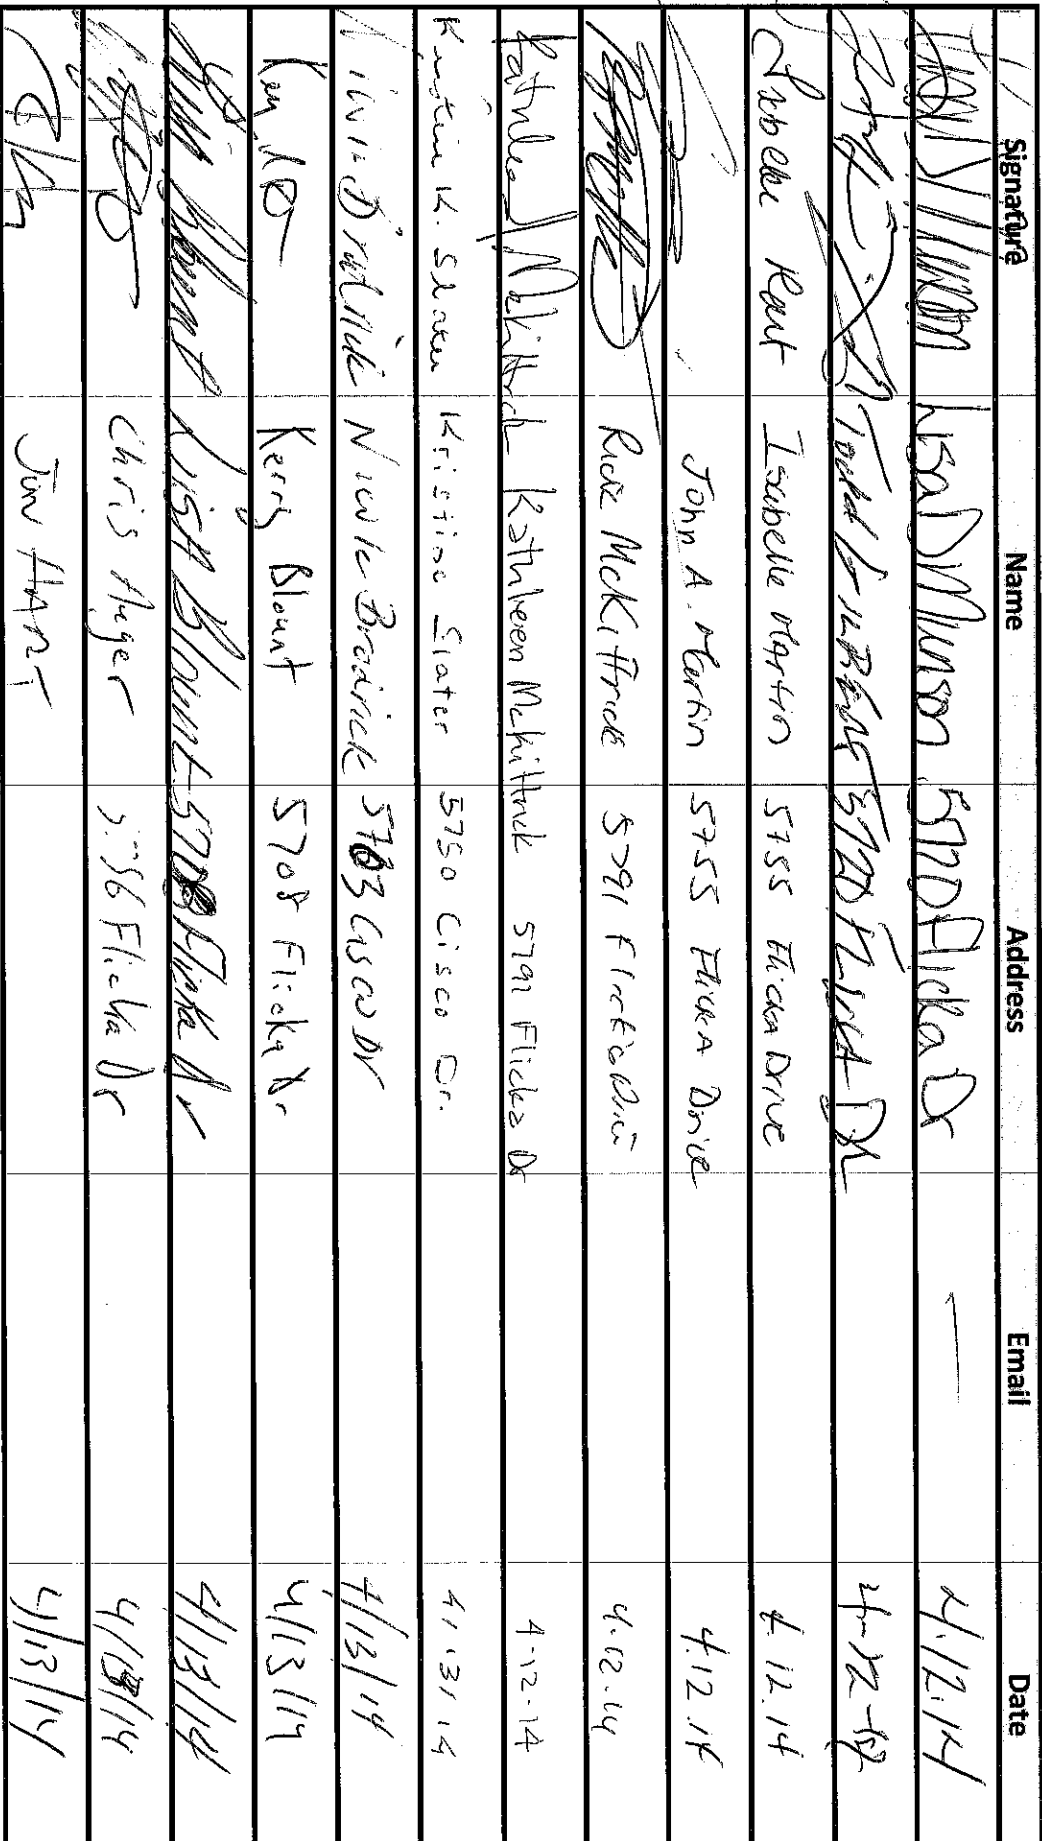 Signature Name Address Email Date
Lisa D Munson Flicka Dr 4.12.14
Todd
Isabelle Martin 5755 Flicka Drive 4.12.14
John A. Martin 5755 Flicka Drive 4.12.14
Rick McKittrick 5791 4.12.14
Kathleen McKittrick Kathleen McKittrick 5791 Flicka Dr 4-12-14
Kristine K. Slater Kristine Slater 5750 Cisco Dr. 4/13/14
Nicole Bradrick Nicole Bradrick Cisco Dr 4/13/14
Kerry Blount 5708 Flicka Dr. 4/13/14
Blount Blount 5708 Flicka Dr 4/13/14
Chris Auger Flicka Dr 4/13/14
Jim HART 4/13/14